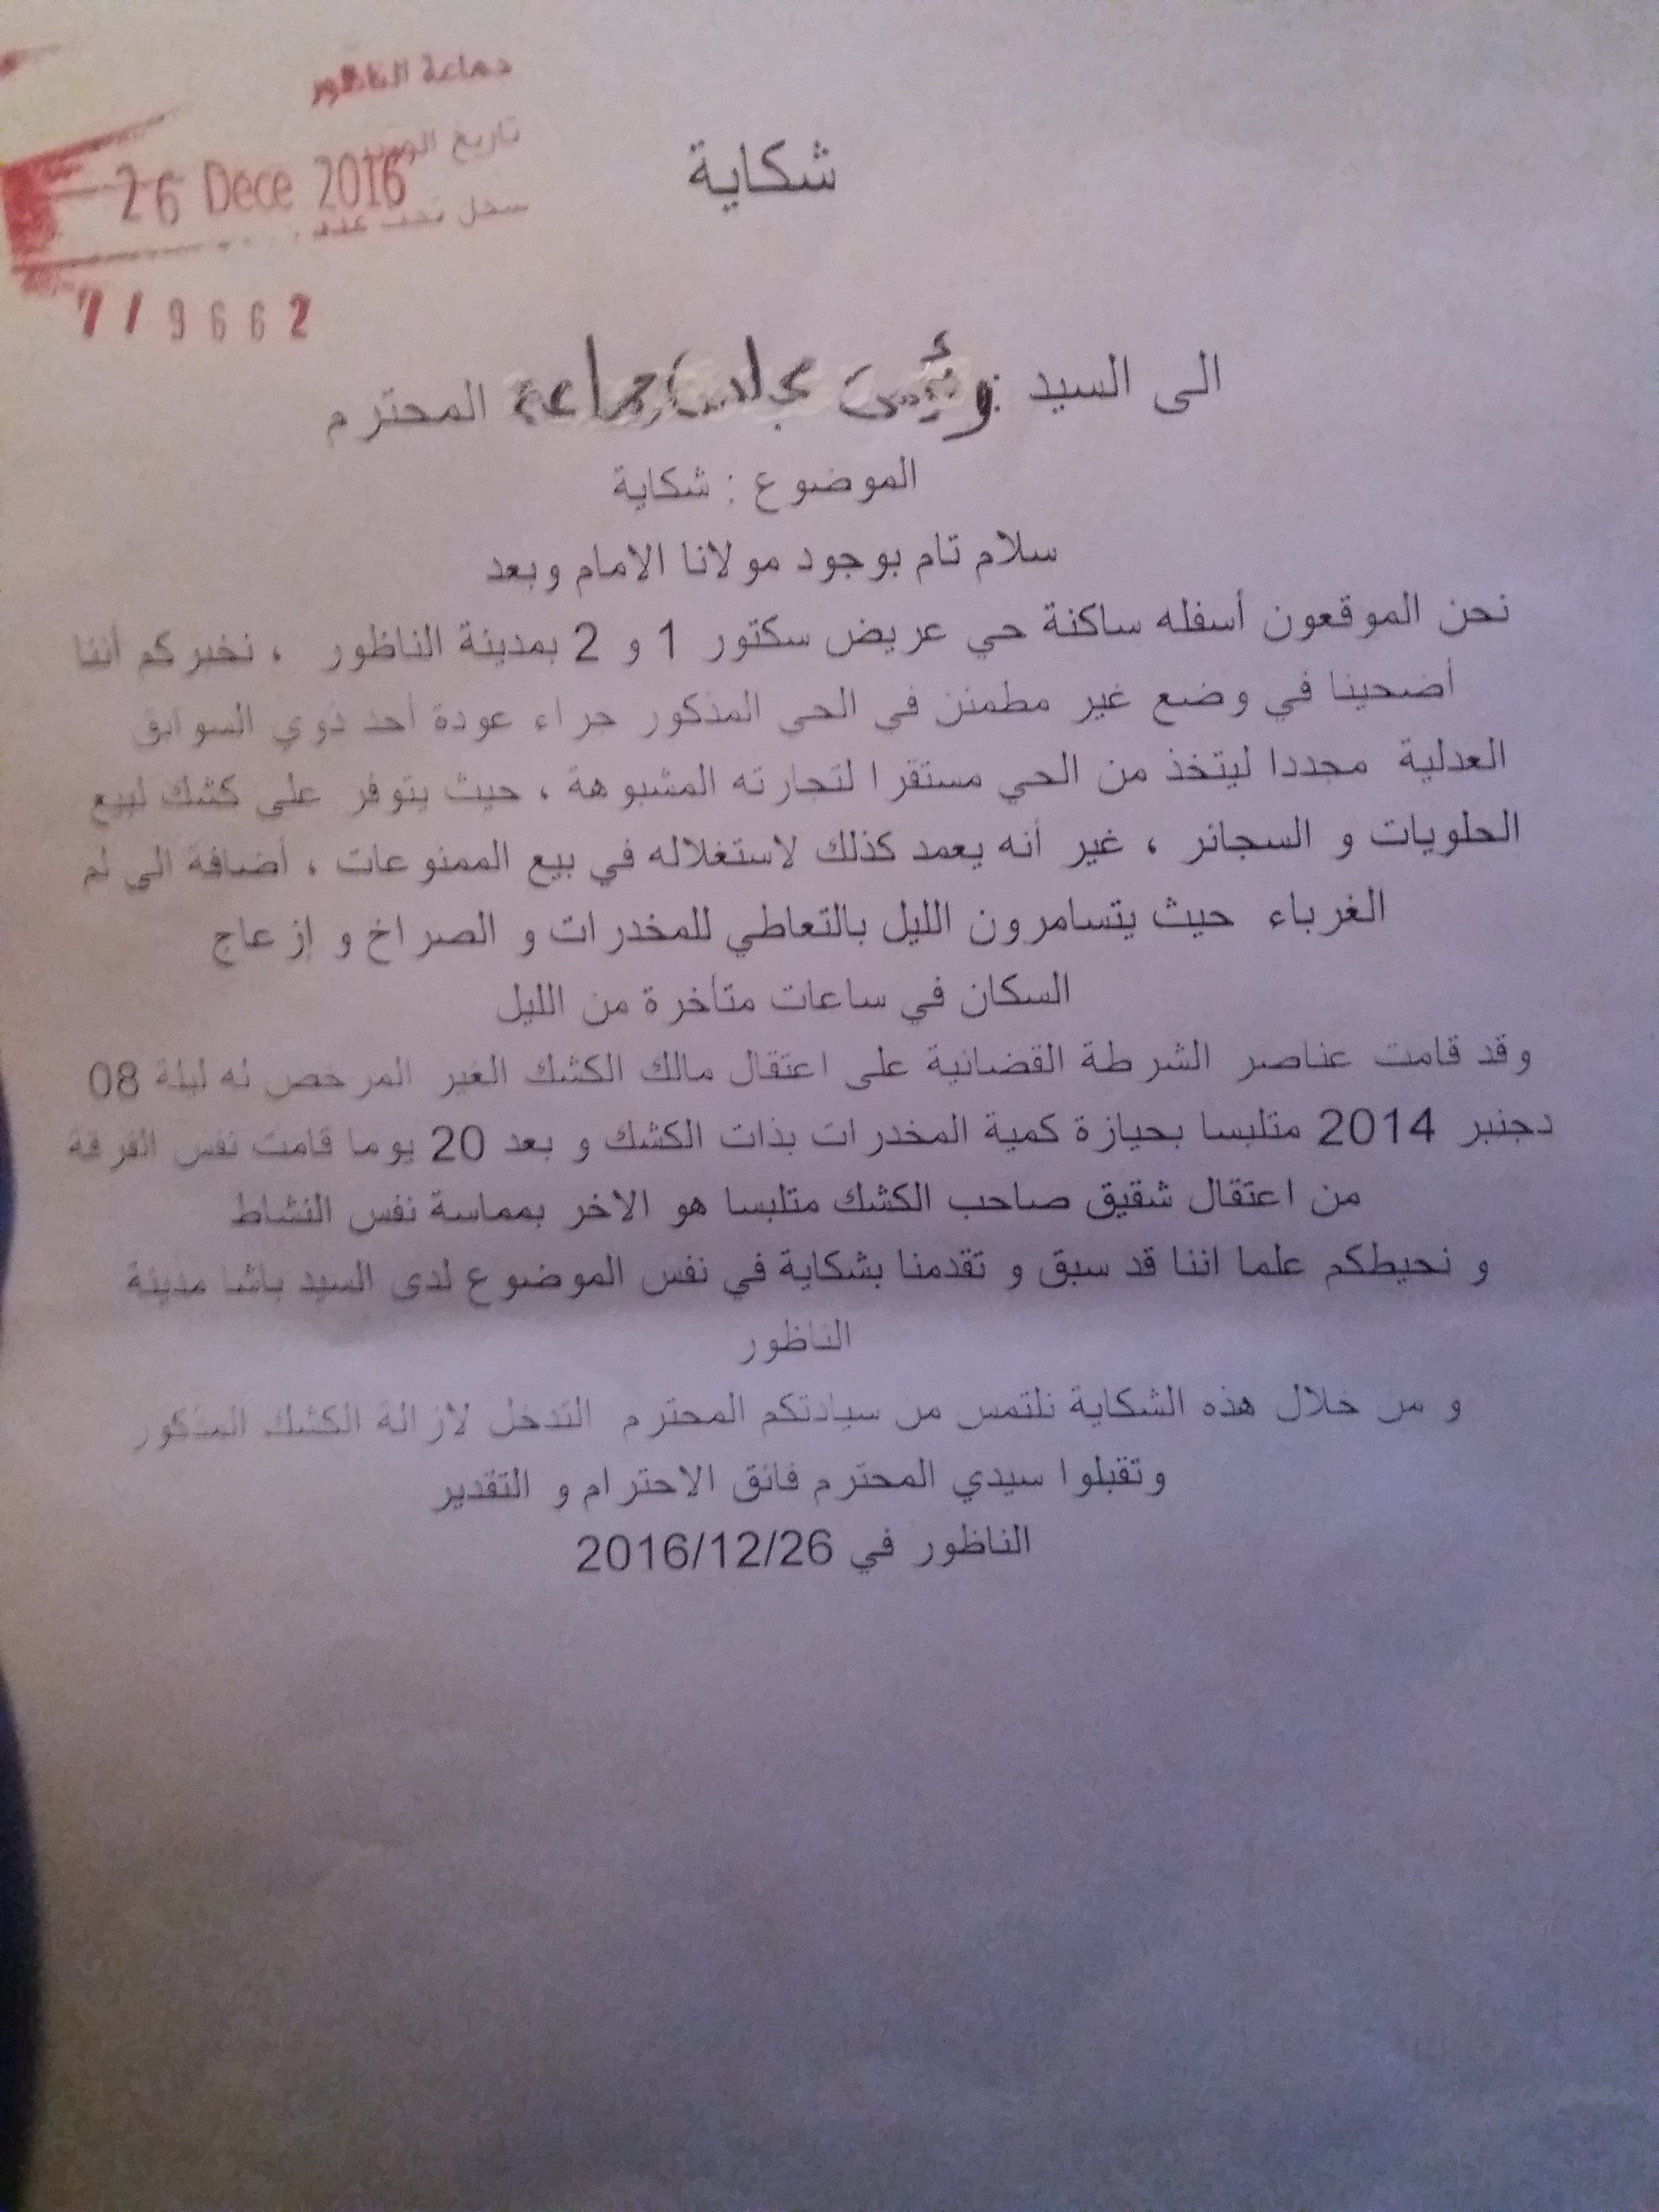 جماعة الناظور
تاريخ
26 Dece 2016
سجل تحت عدد
7/9662
شكاية
الى السيد رئيس مجلس جماعة المحترم
الموضوع : شكاية
سلام تام بوجود مولانا الامام وبعد
نحن الموقعون أسفله ساكنة حي عريض سكتور 1 و 2 بمدينة الناظور ، نخبركم أننا
أضحينا في وضع غير مطمئن في الحي المذكور جراء عودة أحد ذوي السوابق
العدلية مجددا ليتخذ من الحي مستقرا لتجارته المشبوهة ، حيث يتوفر على كشك لبيع
الحلويات و السجائر ، غير أنه يعمد كذلك لاستغلاله في بيع الممنوعات ، أضافة الى لم
الغرباء حيث يتسامرون الليل بالتعاطي للمخدرات و الصراخ و إزعاج
السكان في ساعات متأخرة من الليل
وقد قامت عناصر الشرطة القضائية على اعتقال مالك الكشك الغير المرخص له ليلة 08
دجنبر 2014 متلبسا بحيازة كمية المخدرات بذات الكشك و بعد 20 يوما قامت نفس الفرقة
من اعتقال شقيق صاحب الكشك متلبسا هو الاخر بمماسة نفس النشاط
و نحيطكم علما اننا قد سبق و تقدمنا بشكاية في نفس الموضوع لدى السيد باشا مدينة
الناظور
و من خلال هذه الشكاية نلتمس من سيادتكم المحترم التدخل لازالة الكشك المذكور
وتقبلوا سيدي المحترم فائق الاحترام و التقدير
الناظور في 2016/12/26